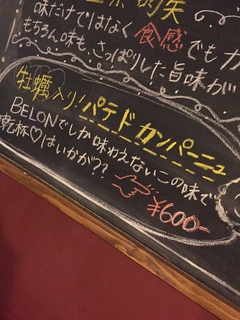 味だけではなく食感でも
もちろん味も、さっぱりした旨味が
牡蠣入り!パテドカンパーニュ
BELONでしか味わえないこの味で
乾杯♡はいかが??
¥600-